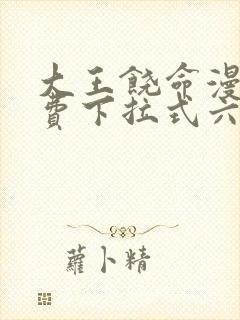 大王饶命漫
费下拉式六
蘿卜精